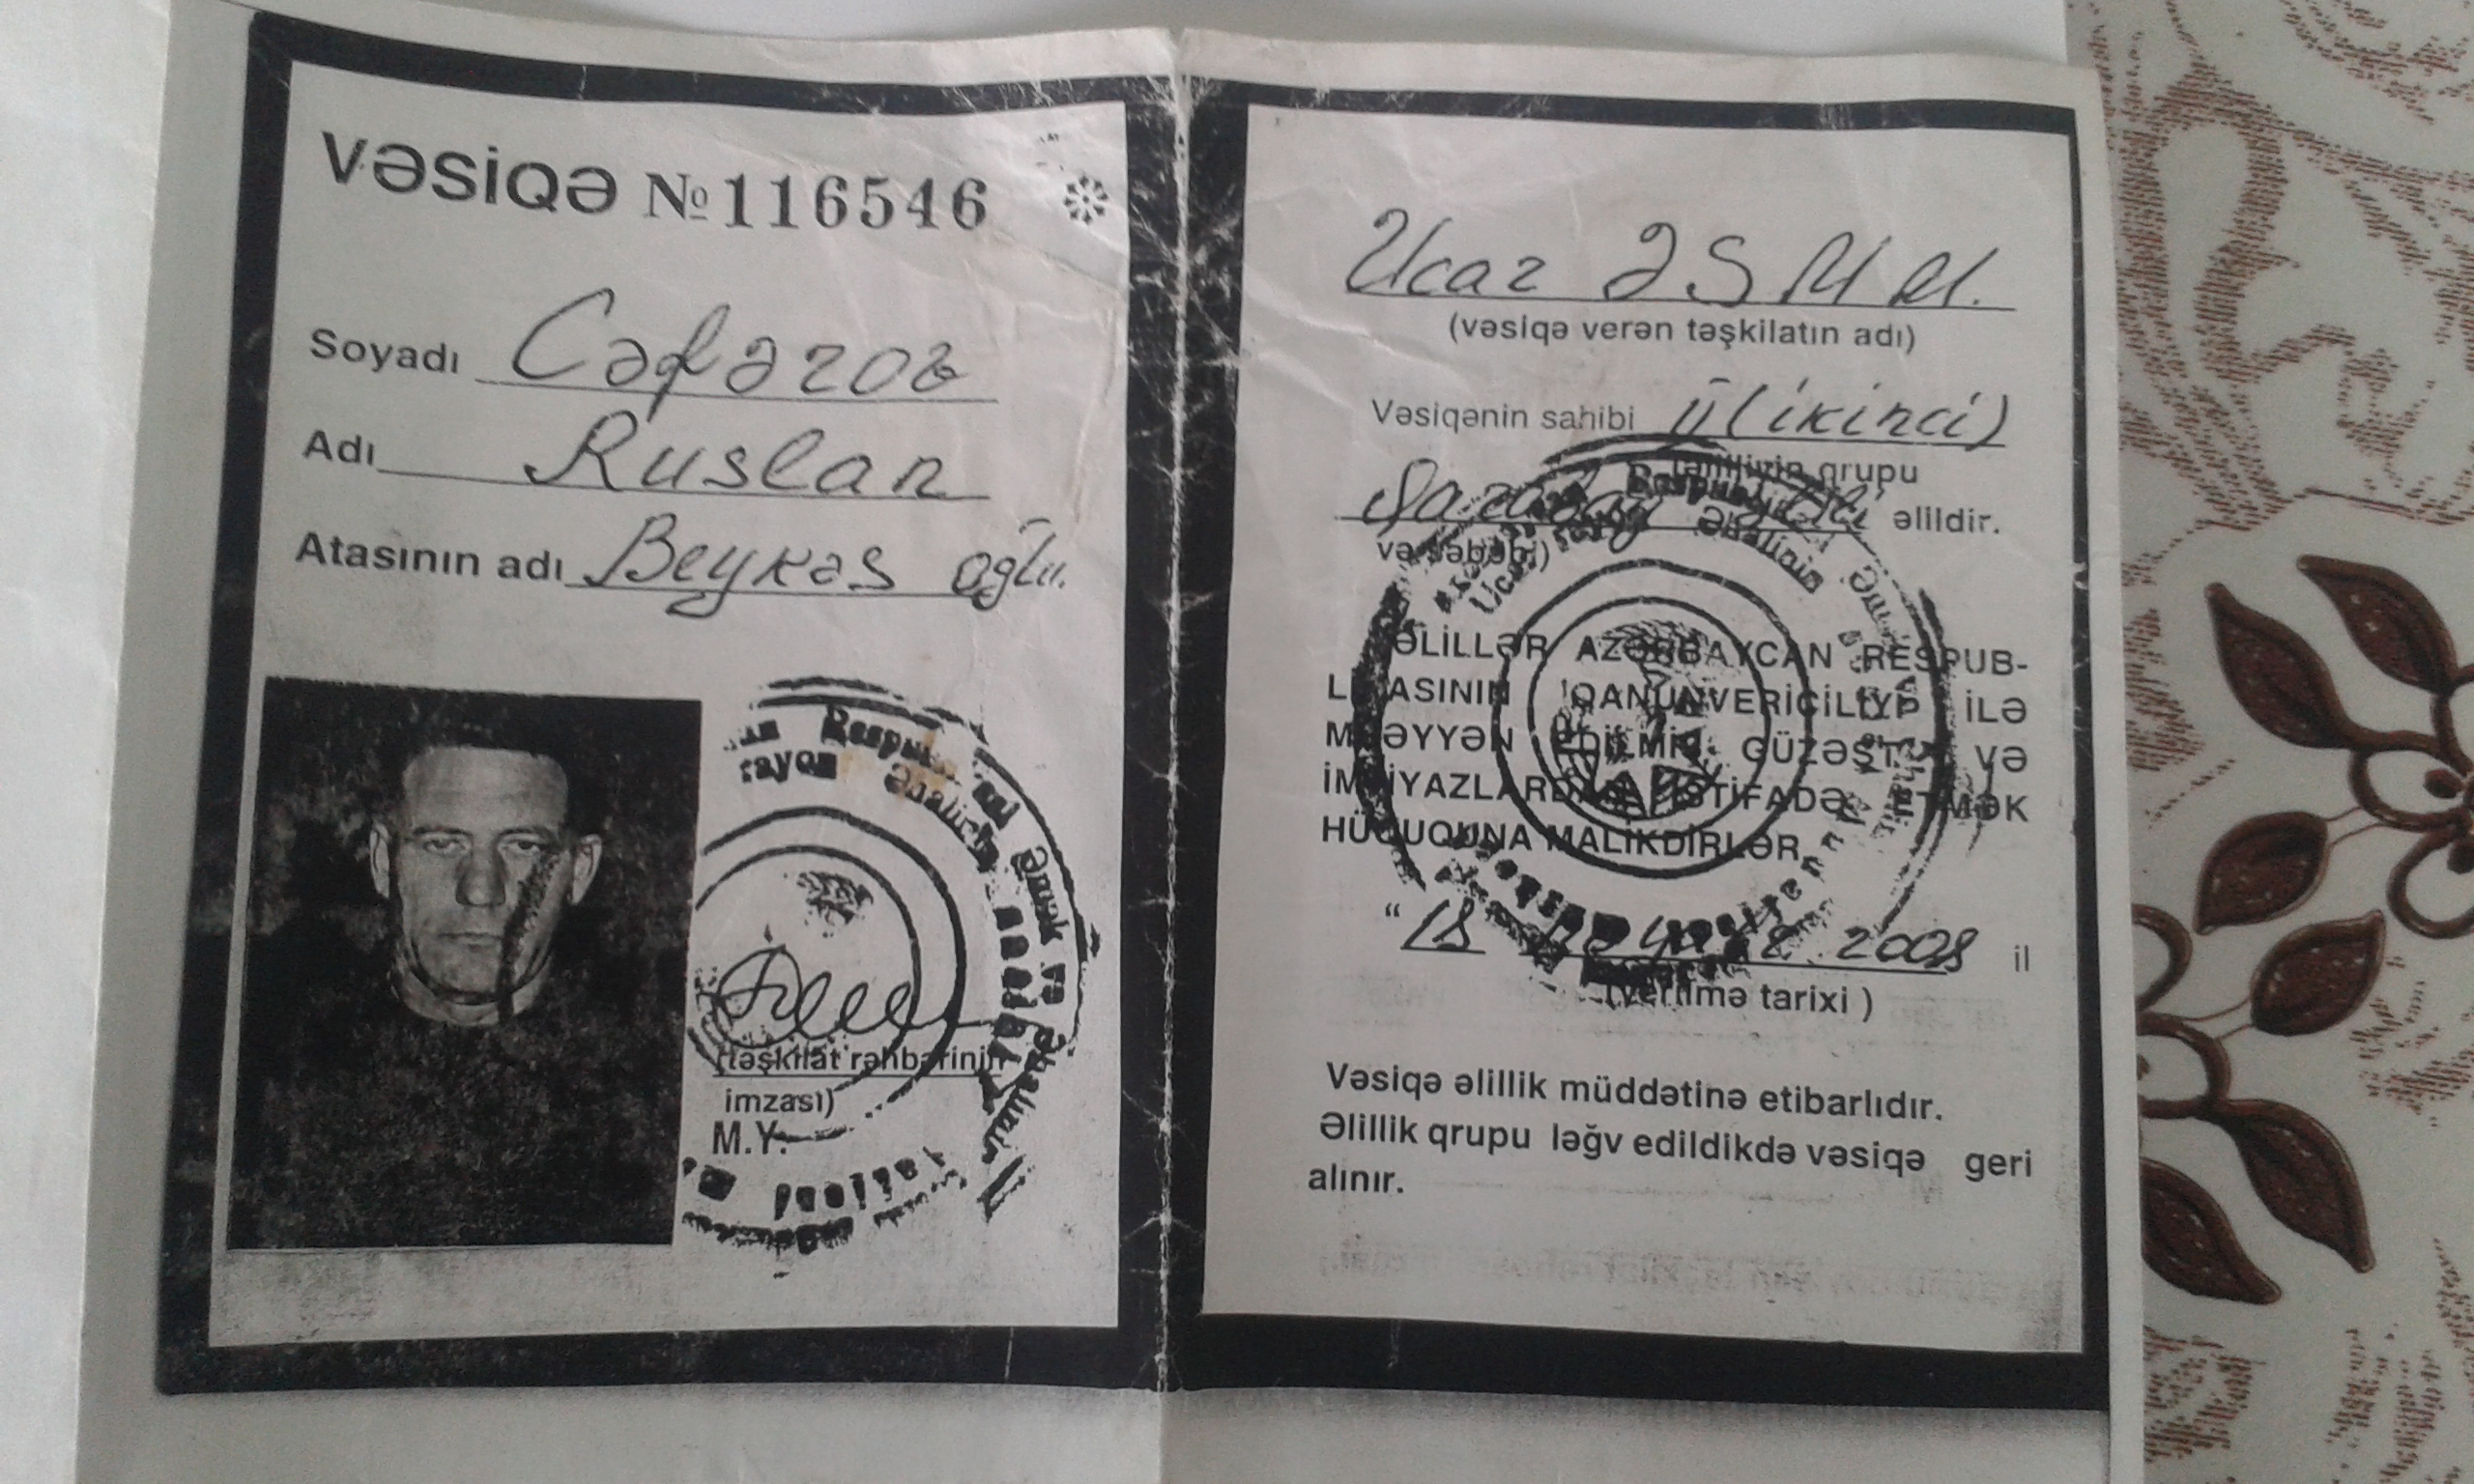 VƏSİQƏ №116546
Soyadı Cəfərov
Adı Ruslan
Atasının adı Beykəs oğlu.
Respub
rayon Əhalinin
Əmək və
(təşkilat rəhbərinin
imzası)
M.Y.
Ucar ƏSMM.
(vəsiqə verən təşkilatın adı)
Vəsiqənin sahibi II (ikinci)
qrupu
Qarabağ əlildir.
və səbəbi)
Ucar rayon Əhalinin
ƏLİLLƏR AZƏRBAYCAN RESPUB-
LİKASININ QANUNVERİCİLİYİ İLƏ
MÜƏYYƏN EDİLMİŞ GÜZƏŞT VƏ
İMTİYAZLARDAN İSTİFADƏ ETMƏK
HÜQUQUNA MALİKDİRLƏR.
“18 noyabr 2008 il
(verilmə tarixi )
Vəsiqə əlillik müddətinə etibarlıdır.
Əlillik qrupu ləğv edildikdə vəsiqə geri
alınır.